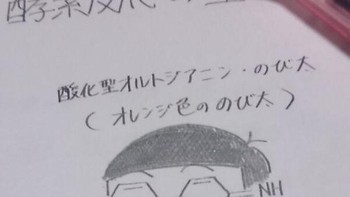 酸化型オルトジアニン・のび太
(オレンジ色ののび太)
NH